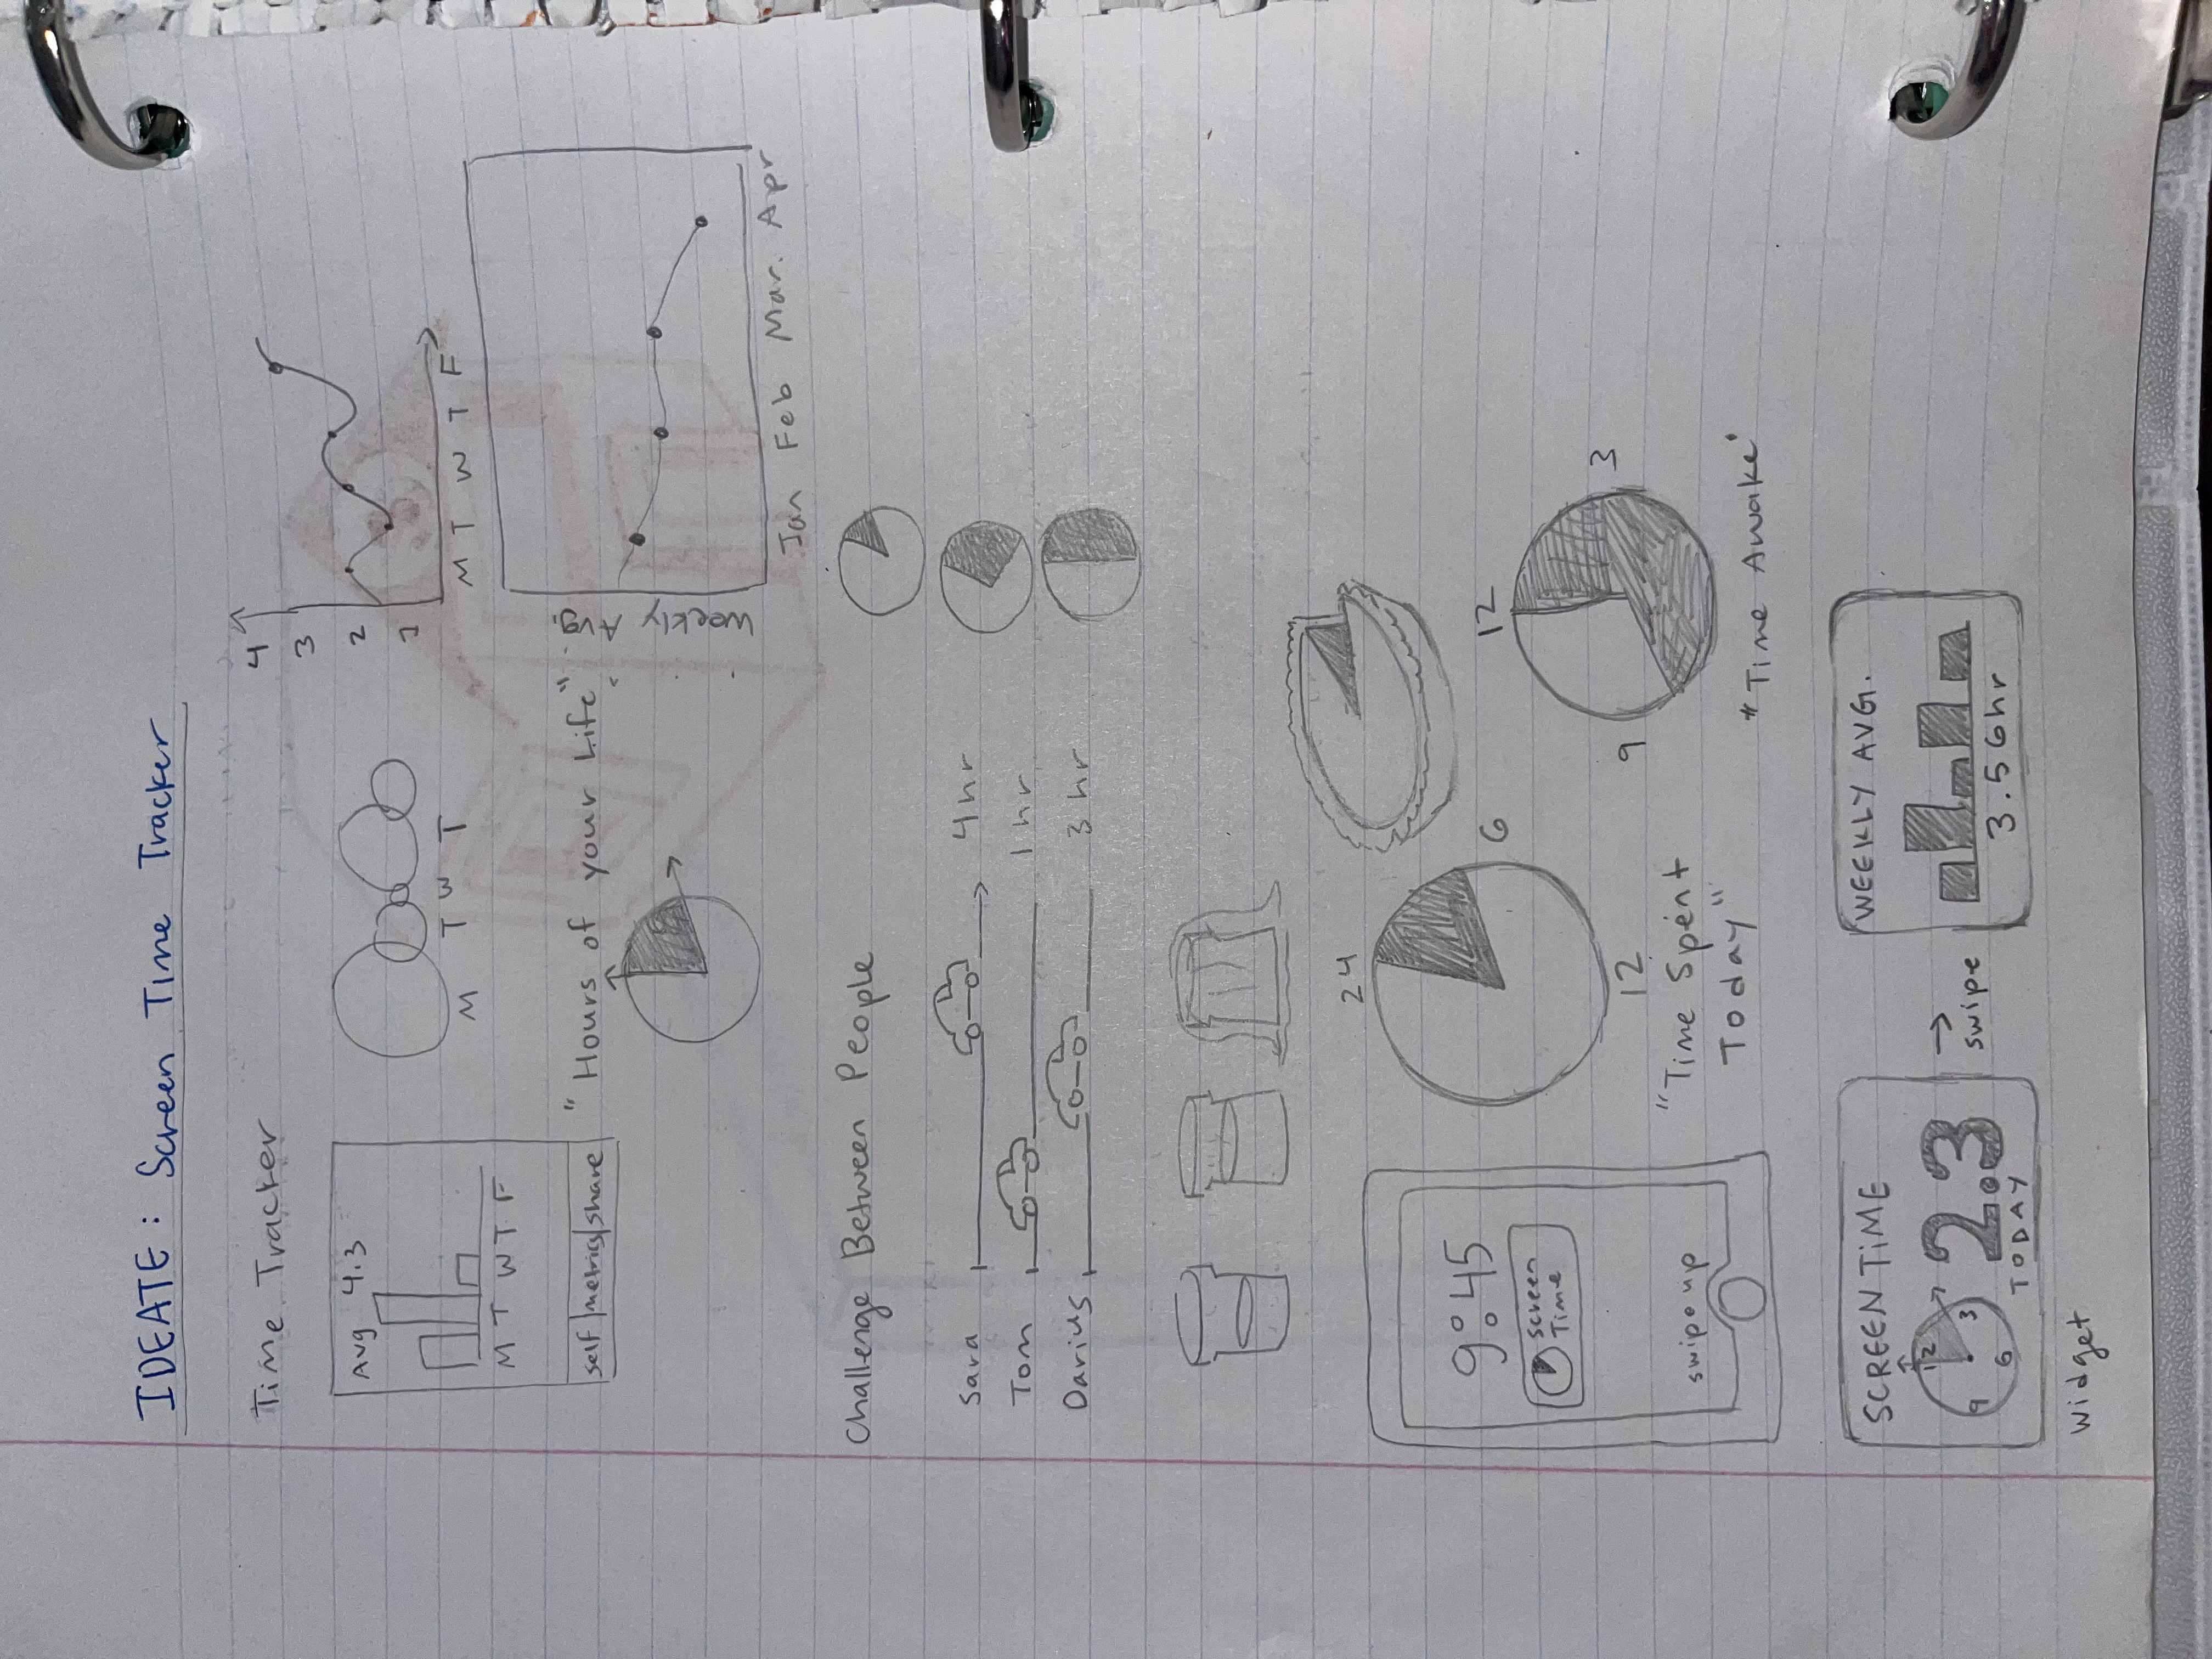 IDEATE: Screen Time Tracker
Time Tracker
Avg 4.3
M T W T F
self metrics share
M T W T
4
3
2
1
M T W T F
"Hours of your Life"
Weekly Avg.
Jan Feb Mar. Apr
Challenge Between People
Sara 4 hr
Tom 1 hr
Darius 3 hr
9:45
Screen
Time
swipe up
24
6
12
"Time Spent
Today"
12
3
9
"Time Awake"
SCREEN TIME
12
9 3
6
2.3
TODAY
→
swipe
WEEKLY AVG.
3.56hr
Widget